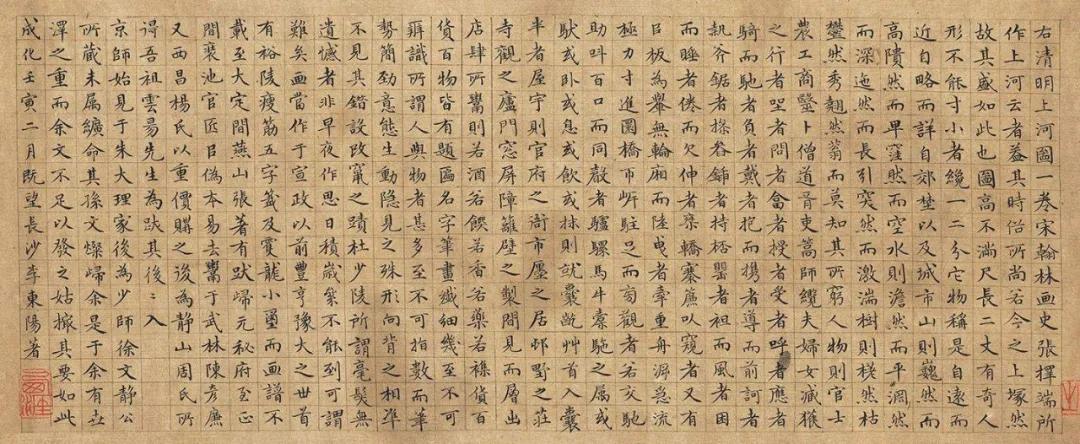 右清明上河圖一卷宋翰林画史張擇端所
作上河云者蓋其時俗所尚若今之上塚然
故其盛如此也圖高不滿尺長二丈有奇人
形不能寸小者纔一二分它物稱是自遠而
近自略而詳自郊埜以及城市山則巍然而
高隤然而卑窪然而空水則澹然而平淵然
而深迤然而長引突然而激湍樹則槎然枯
鬱然秀翹然蓊而莫知其所窮人物則官士
農工商醫卜僧道胥吏篙師纜夫婦女臧獲
之行者坐者問者答者授者受者呼者應者
騎而馳者負者戴者抱而携者導而前訶者
執斧鋸者操畚鍤者持杯罌者袒而風者困
而睡者倦而欠伸者乘轎搴簾以窺者又有
以板為轝無輪廂而陸曳者牽重舟泝急流
極力寸進圜橋市岓駐足而旁觀者若交馳
助叫百口而同聲者驢騾馬牛橐駝之屬或
馱或卧或息或飲或秣則就囊齕艸首入囊
半者屋宇則官府之衙市廛之居邨野之莊
寺觀之廬門窓屏障籬壁之製間見而層出
店肆所鬻則若酒若饌若香若藥若襍貨百
貨百物皆有題匾名字筆畫纖細幾至不可
辯識所謂人與物者其多至不可指數而筆
勢簡勁意態生動隱見之殊形向背之相準
不見其錯設改竄之蹟杜少陵所謂毫髮無
遺憾者非早夜作思日積歲絫不能到可謂
難矣画當作于宣政以前豐亨豫大之世首
有裕陵瘦筋五字籤及雙龍小璽而画譜不
載至大定間燕山張著有跋歸元秘府至正
間裘池官匠以偽本易去鬻于武林陳彦廉
又西昌楊氏以重價購之後為静山周氏所
得吾祖雲昜先生為跋其後〻入
京師始見于朱大理家後為少師徐文靜公
所蔵未属纊命其孫文燦歸余是于余有世
澤之重而余文不足以發之姑據其要如此
成化壬寅二月既望長沙李東陽著